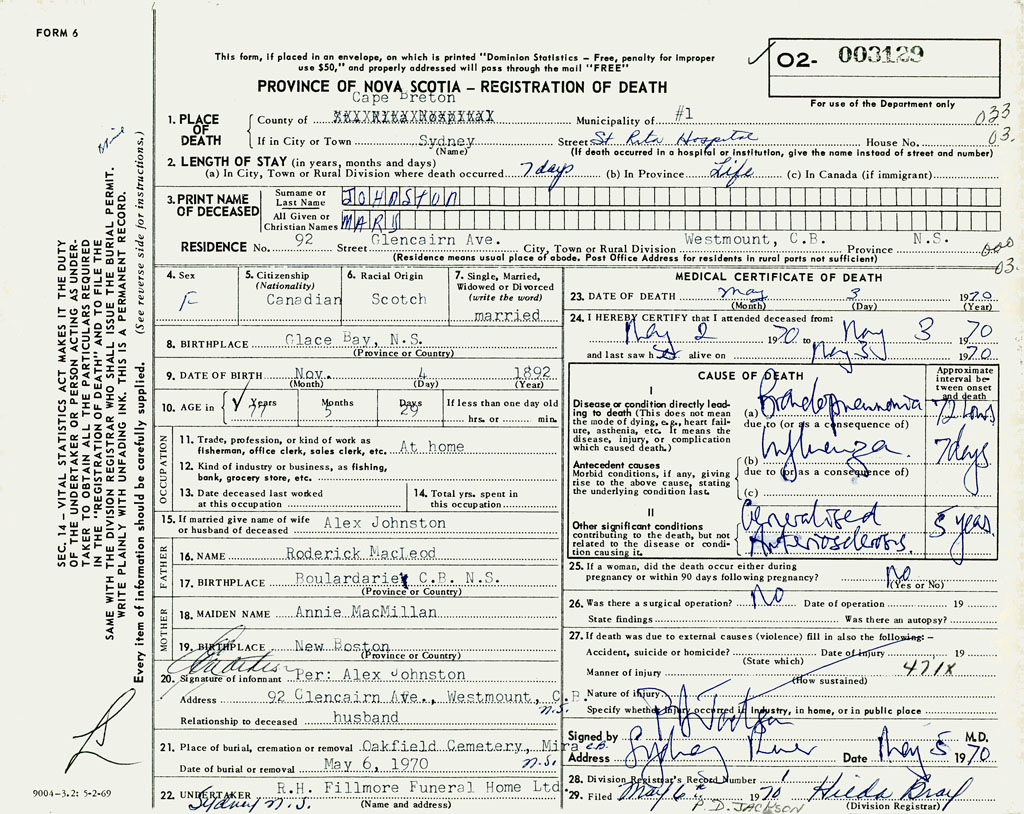 FORM 6
This form, if placed in an envelope, on which is printed "Dominion Statistics – Free, penalty for improper
use $50," and properly addressed will pass through the mail "FREE"
02- 003129
For use of the Department only
PROVINCE OF NOVA SCOTIA – REGISTRATION OF DEATH
Cape Breton
1. PLACE OF DEATH
County of St. Rita Hospital Municipality of #1 033
If in City or Town Sydney Street St Rita Hospital House No. 03.
(Name) (If death occurred in a hospital or institution, give the name instead of street and number)
2. LENGTH OF STAY (in years, months and days)
(a) In City, Town or Rural Division where death occurred 7 days (b) In Province Life (c) In Canada (if immigrant)
3. PRINT NAME OF DECEASED
Surname or Last Name JOHNSTON
All Given or Christian Names MARY
RESIDENCE No. 92 Street Glencairn Ave. City, Town or Rural Division Westmount, C.B. Province N.S.
(Residence means usual place of abode. Post Office Address for residents in rural ports not sufficient)
03.
4. Sex F
5. Citizenship (Nationality) Canadian
6. Racial Origin Scotch
7. Single, Married, Widowed or Divorced (write the word) married
8. BIRTHPLACE Glace Bay, N.S.
(Province or Country)
9. DATE OF BIRTH Nov. 4 1892
(Month) (Day) (Year)
10. AGE in Years 77 Months 5 Days 29 If less than one day old
hrs. or min.
OCCUPATION
11. Trade, profession, or kind of work as
fisherman, office clerk, sales clerk, etc. At home
12. Kind of industry or business, as fishing,
bank, grocery store, etc.
13. Date deceased last worked
at this occupation
14. Total yrs. spent in
this occupation
15. If married give name of wife
or husband of deceased Alex Johnston
FATHER
16. NAME Roderick MacLeod
17. BIRTHPLACE Boulardarie, C.B. N.S.
(Province or Country)
MOTHER
18. MAIDEN NAME Annie MacMillan
19. BIRTHPLACE New Boston
(Province or Country)
20. Signature of informant Per: Alex Johnston
Address 92 Glencairn Ave., Westmount, C.B.
N.S.
Relationship to deceased husband
21. Place of burial, cremation or removal Oakfield Cemetery, Mira C.B.
Date of burial or removal May 6, 1970 N.S.
22. UNDERTAKER R.H. Fillmore Funeral Home Ltd
Sydney N.S. (Name and address)
MEDICAL CERTIFICATE OF DEATH
23. DATE OF DEATH May 3 1970
(Month) (Day) (Year)
24. I HEREBY CERTIFY that I attended deceased from:
May 2 1970 to May 3 1970
and last saw her alive on May 3 1970
CAUSE OF DEATH
Approximate interval between onset and death
I
Disease or condition directly leading to death (This does not mean the mode of dying, e.g., heart failure, asthenia, etc. It means the disease, injury, or complication which caused death.)
(a) Bronchopneumonia 72 hours
due to (or as a consequence of)
(b) Influenza 7 days
due to (or as a consequence of)
(c)
Antecedent causes
Morbid conditions, if any, giving rise to the above cause, stating the underlying condition last.
II
Other significant conditions contributing to the death, but not related to the disease or condition causing it.
Generalised
Arteriosclerosis. 5 years
25. If a woman, did the death occur either during
pregnancy or within 90 days following pregnancy? No
(Yes or No)
26. Was there a surgical operation? No Date of operation 19
State findings Was there an autopsy?
27. If death was due to external causes (violence) fill in also the following: –
Accident, suicide or homicide? Date of injury , 19
(State which)
Manner of injury 471X
(How sustained)
Nature of injury
Specify whether injury occurred in industry, in home, or in public place
Signed by M.D.
Address Sydney River Date May 5 1970
28. Division Registrar's Record Number 1
29. Filed May 6th 1970 Hilda Gray
P.D. JACKSON (Division Registrar)
SEC. 14 – VITAL STATISTICS ACT MAKES IT THE DUTY
OF THE UNDERTAKER OR PERSON ACTING AS UNDER-
TAKER TO OBTAIN ALL THE PARTICULARS REQUIRED
IN THE "REGISTRATION OF DEATH" AND TO FILE THE
SAME WITH THE DIVISION REGISTRAR WHO SHALL ISSUE THE BURIAL PERMIT.
WRITE PLAINLY WITH UNFADING INK. THIS IS A PERMANENT RECORD.
Every item of information should be carefully supplied. (See reverse side for instructions.)
9004-3.2: 5-2-69